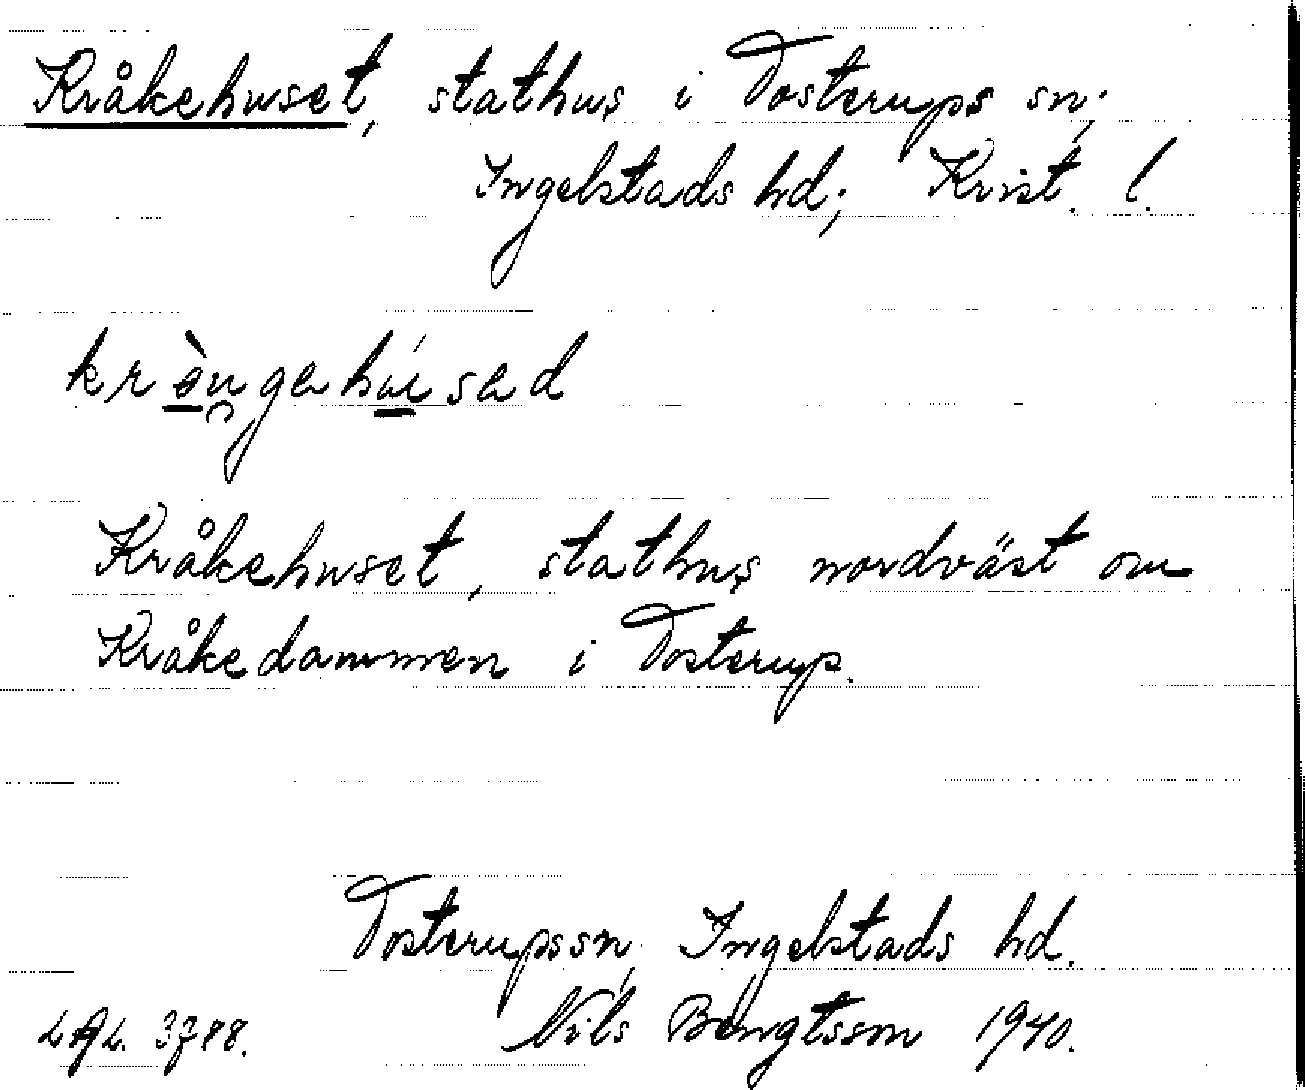 Kråkehuset, stathus i Tosterups sn;
Ingelstads hd; Krist. l.
Kråkehuset, stathus nordväst om
Kråkedammen i Tosterup.
Tosterups sn, Ingelstads hd.
Nils Bengtsson 1940.